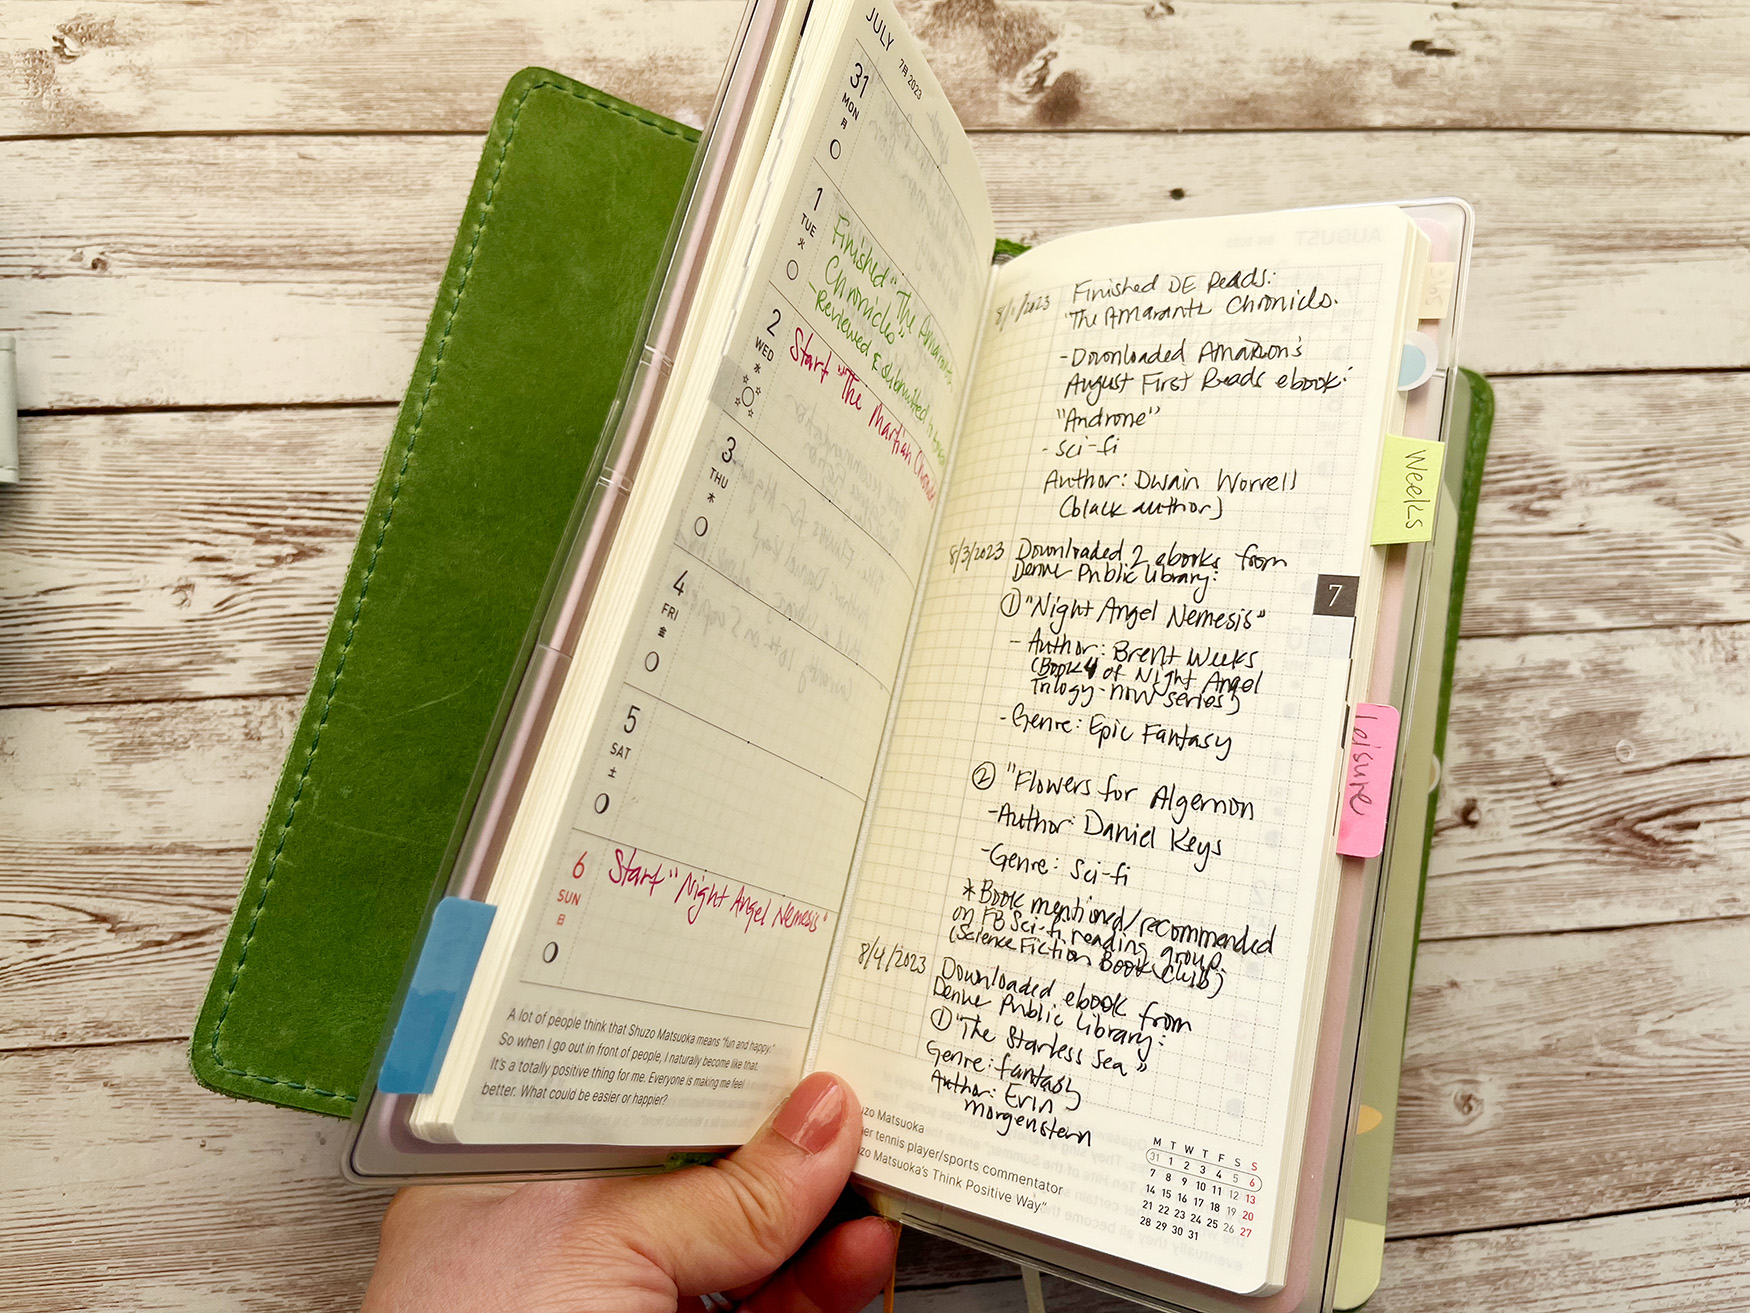 JULY
7月 2023
31
MON
月
1
TUE
火
Finished "The Amarant
Chronicles"
-Reviewed & submitted
2
WED
水
Start "The Martian Chronicl
3
THU
木
4
FRI
金
5
SAT
土
6
SUN
日
Start "Night Angel Nemesis"
A lot of people think that Shuzo Matsuoka means "fun and happy."
So when I go out in front of people, I naturally become like that.
It's a totally positive thing for me. Everyone is making me feel
better. What could be easier or happier?
8/1/2023
Finished DE Reads:
"The Amarantz Chronicls.
-Downloaded Amazon's
August First Reads ebook:
"Androne"
- Sci-fi
Author: Dwain Worrell
(black author)
8/3/2023
Downloaded 2 ebooks from
Denver Public Library:
① "Night Angel Nemesis"
- Author: Brent Weeks
(Book 4 of Night Angel
Trilogy - now series)
-Genre: Epic Fantasy
② "Flowers for Algernon
-Author: Daniel Keys
-Genre: Sci-fi
*Book mentioned/recommended
on FB Sci-fi reading group.
(Science Fiction Book Club)
8/4/2023
Downloaded ebook from
Denver Public Library:
① "The Starless Sea"
Genre: fantasy
Author: Erin
Morgenstern
uzo Matsuoka
er tennis player/sports commentator
zo Matsuoka's Think Positive Way"
M T W T F S S
31 1 2 3 4 5 6
7 8 9 10 11 12 13
14 15 16 17 18 19 20
21 22 23 24 25 26 27
28 29 30 31
Weeks
7
leisure